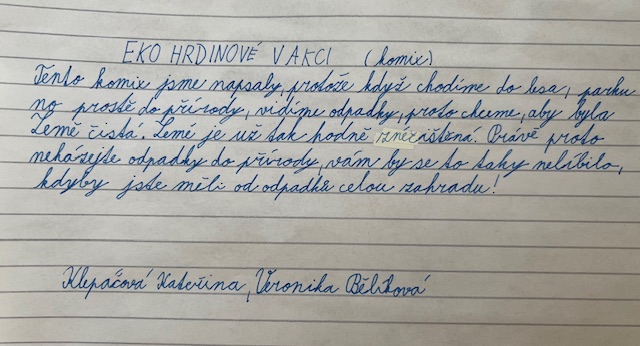 EKO HRDINOVÉ V AKCI (komix)
Tento komix jsme napsaly, protože když chodíme do lesa, parku
no prostě do přírody, vidíme odpadky, proto chceme, aby byla
Země čistá. Země je už tak hodně znečištěná. Právě proto
neházejte odpadky do přírody, vám by se to taky nelíbilo,
kdyby jste měli od odpadků celou zahradu!
Klepáčová Kateřina, Veronika Bělíková